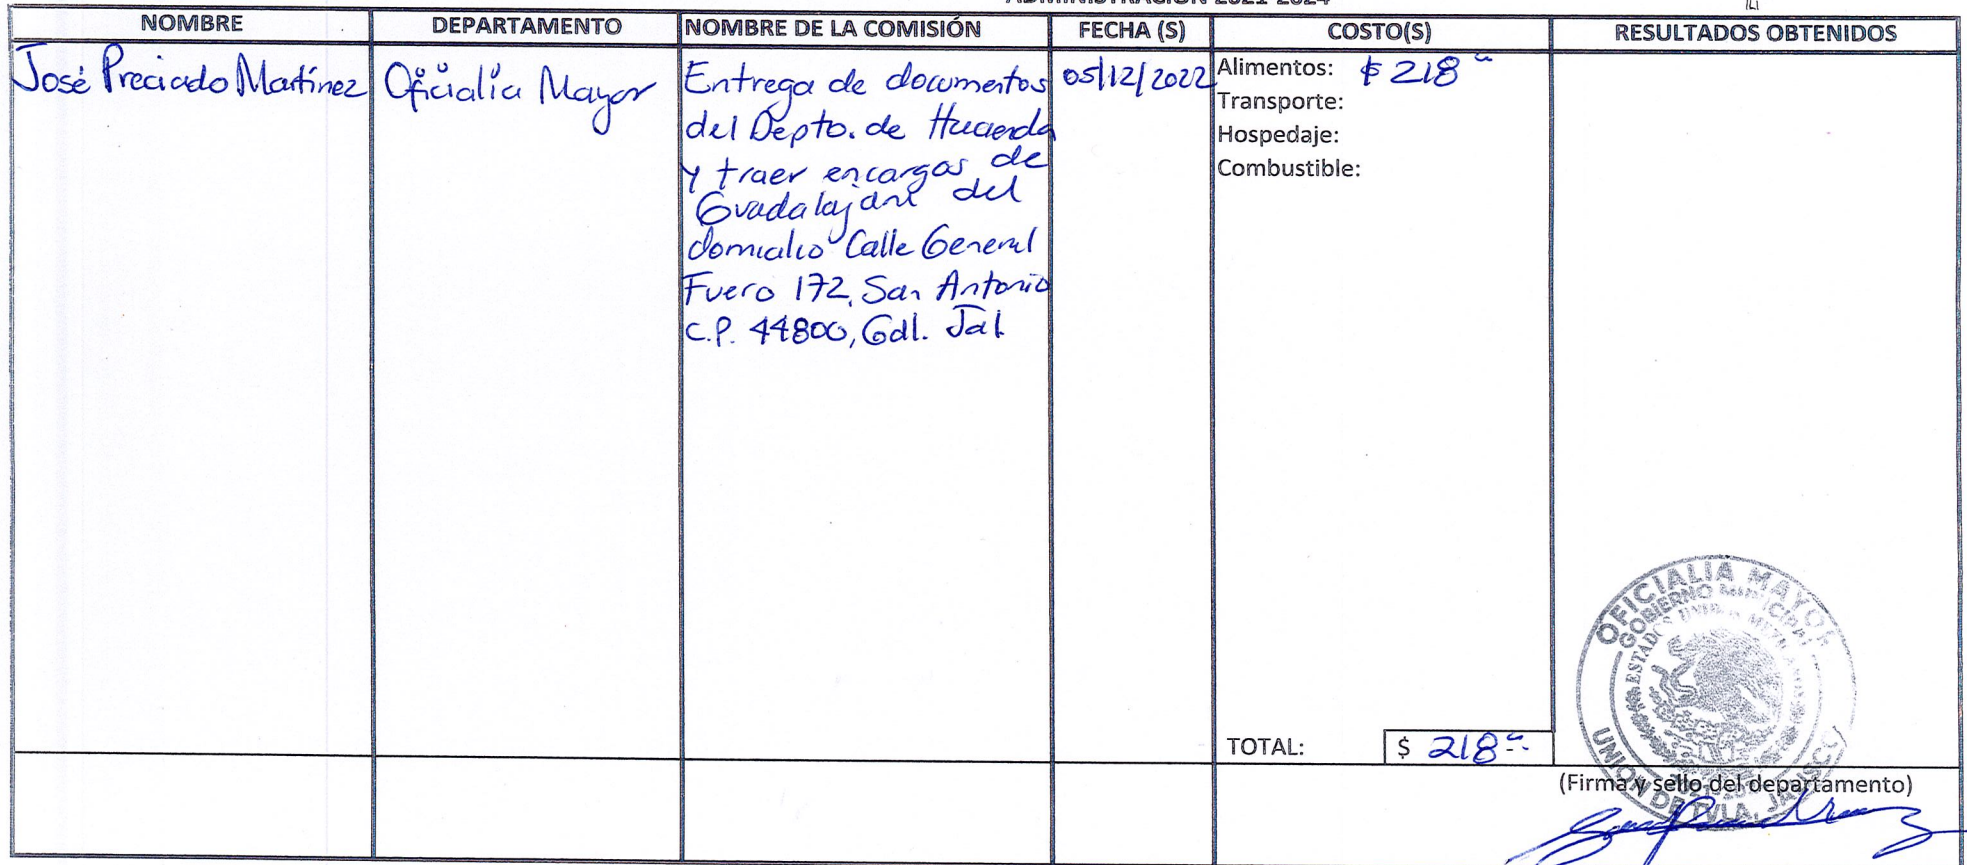 ADMINISTRACIÓN 2021-2024
NOMBRE DEPARTAMENTO NOMBRE DE LA COMISIÓN FECHA (S) COSTO(S) RESULTADOS OBTENIDOS
José Preciado Martínez
Oficialía Mayor
Entrega de documentos
del Depto. de Hacienda
y traer encargos de
Guadalajara del
domicilio Calle General
Fuero 172, San Antonio
C.P. 44800, Gdl. Jal.
05/12/2022
Alimentos: $ 218
Transporte:
Hospedaje:
Combustible:
TOTAL: $ 218
OFICIALIA MAYOR
GOBIERNO MUNICIPAL
ESTADOS UNIDOS MEXICANOS
UNION DE TULA, JALISCO
(Firma y sello del departamento)